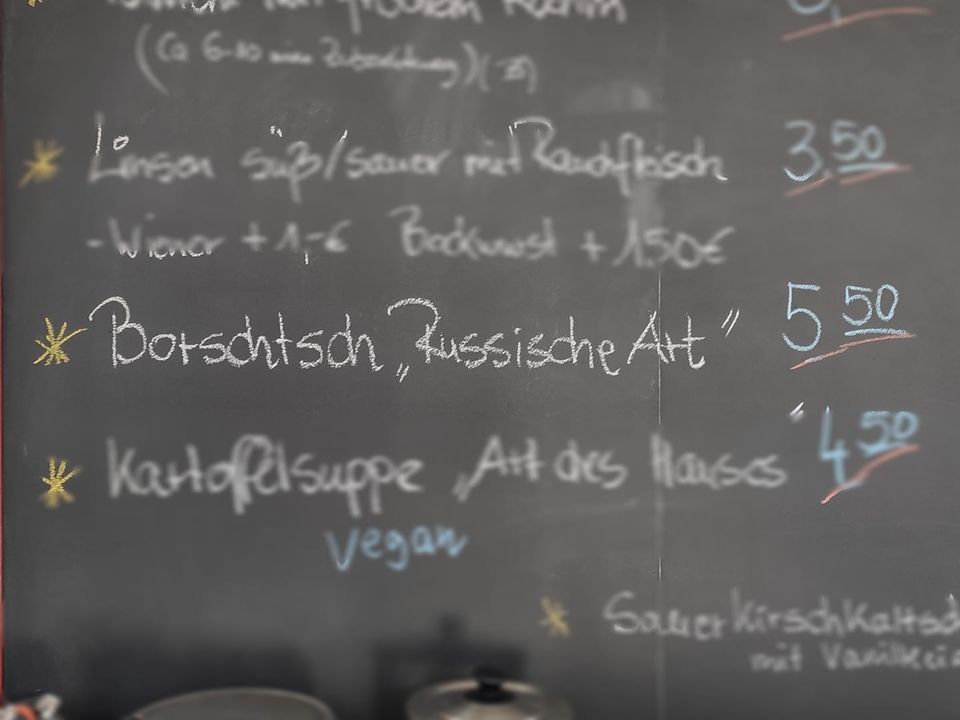 mit großem Rahm
(Ca 6-10 min Zubereitung)
Linsen süß/sauer mit Rauchfleisch 3.50
-Wiener + 1,-€ Bockwust + 1.50€
Borschtsch „Russische Art" 5 50
Kartoffelsuppe „Art des Hauses" 4 50
vegan
Sauerkirschkaltsc
mit Vanilleei